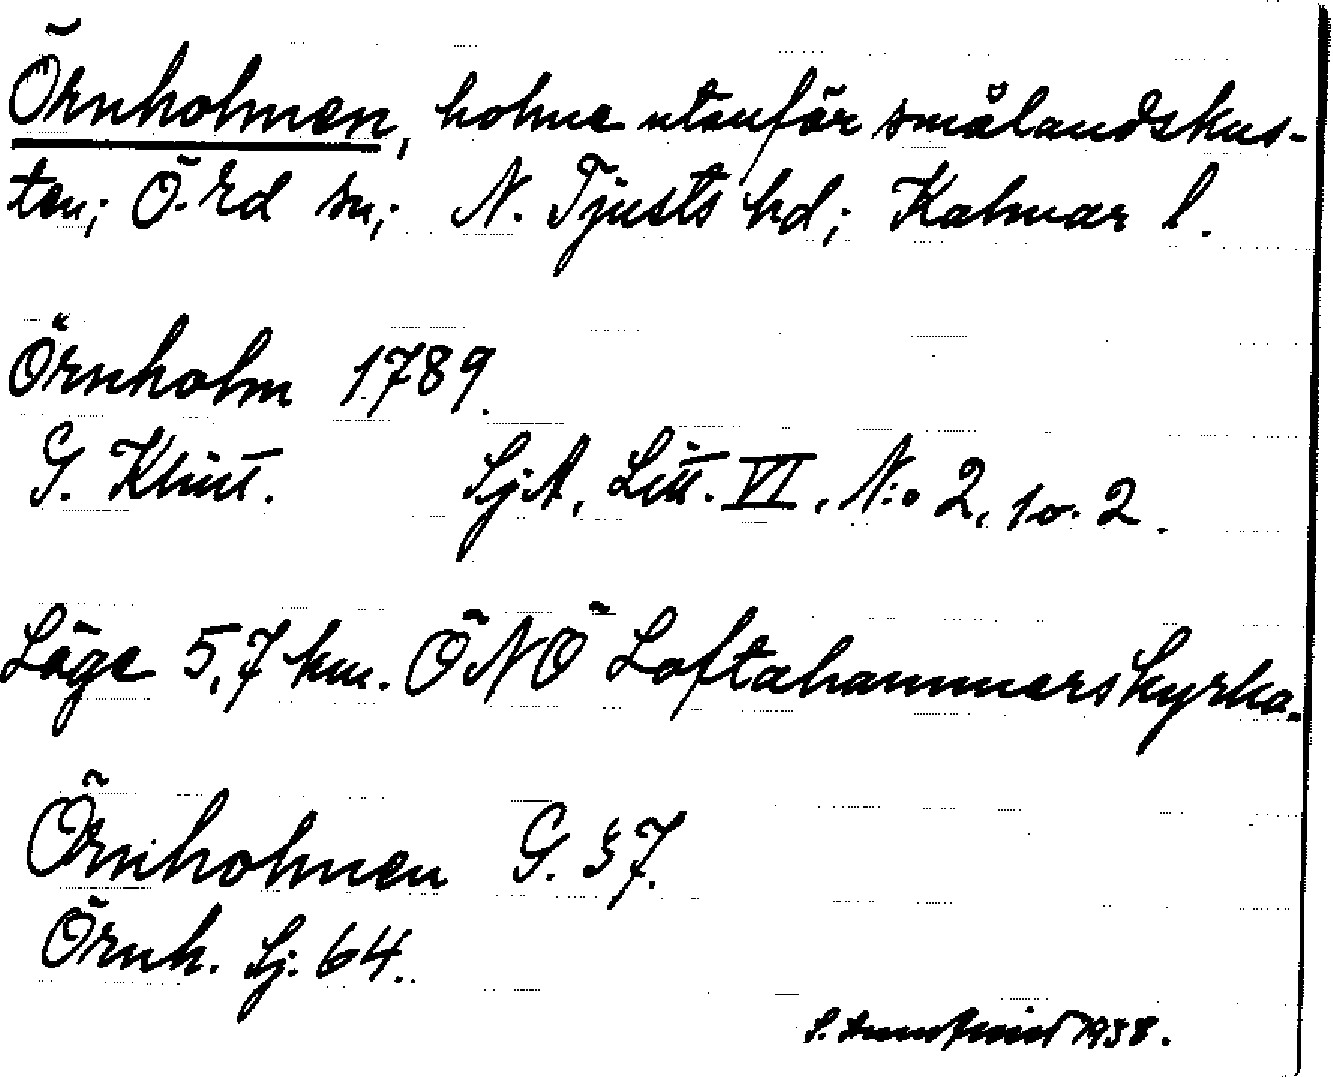 Örnholmen, holme utanför smålandskus-
ten; Ö. Ed sn; N. Tjusts hd; Kalmar l.
Örnholm 1789.
G. Klint. SjA, Litt. VI, N:o 2, 2.
Läge 5,7 km. ÖNÖ Loftahammars kyrka.
Örnholmen G. 37.
Örnh. Sj. 64.
S. 1938.